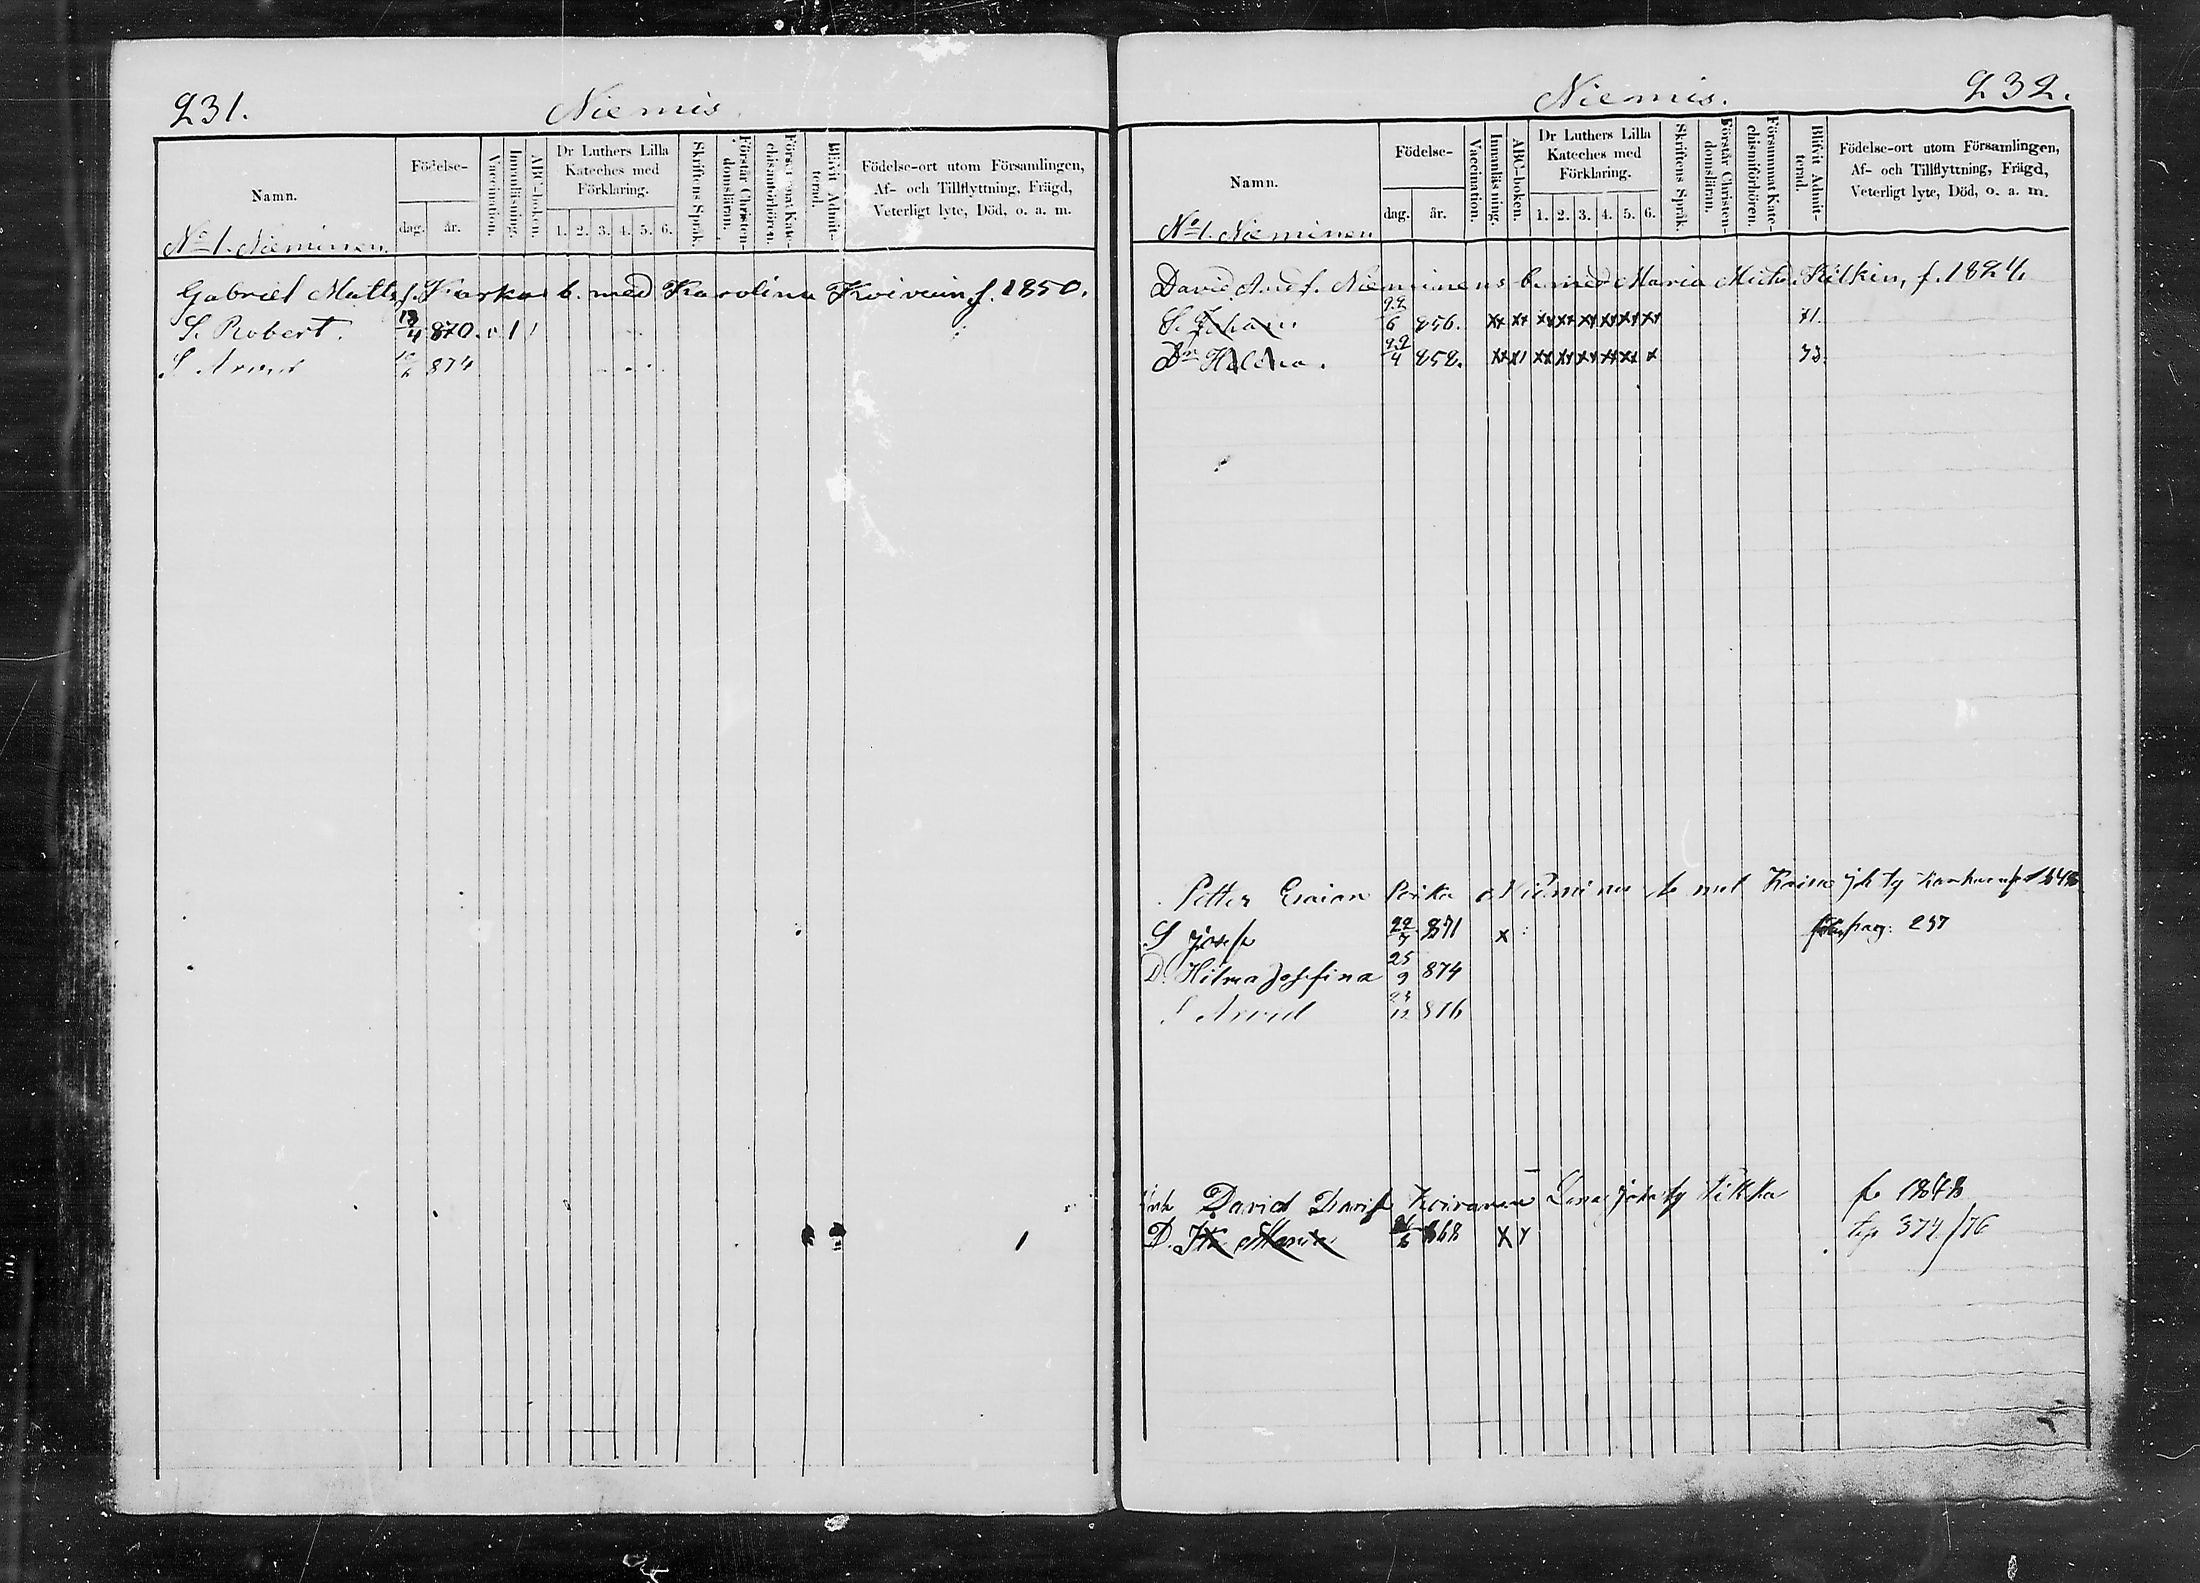 231.
Niemis
Namn.
Födelse-
dag.
år.
Vaccination.
Innanläsning.
ABC-boken.
Dr Luthers Lilla
Kateches med
Förklaring.
1. 2. 3. 4. 5. 6.
Skriftens Språk.
Förstår Christen-
domsläran.
Försummat Kate-
chismiförhören.
Blifvit Admit-
terad.
Födelse-ort utom Församlingen,
Af- och Tillflyttning, Frägd,
Veterligt lyte, Död, o. a. m.
No 1. Nieminen
Gabriel Matts f. Karkas b. med Karolina f. 1850.
S. Robert. 13/4 870.
S Arvid 874
Niemis.
232.
Namn.
Födelse-
dag.
år.
Vaccination.
Innanläsning.
ABC-boken.
Dr Luthers Lilla
Kateches med
Förklaring.
1. 2. 3. 4. 5. 6.
Skriftens Språk.
Förstår Christen-
domsläran.
Försummat Kate-
chismiförhören.
Blifvit Admit-
terad.
Födelse-ort utom Församlingen,
Af- och Tillflyttning, Frägd,
Veterligt lyte, Död, o. a. m.
No 1. Nieminen
David And. f. Nieminens b. med Maria Mich. f. 1824
S. Johan 22/6 856. 71.
Dr Helena. 22/4 858. 73.
Petter Nieminen b med
S Josef 871 x pag. 237
D. Hilma Josefina 25/9 874
S Arvid 23/12 876
David Koivunen Lena Pekka f. 1848
D. Maria 868 374/76